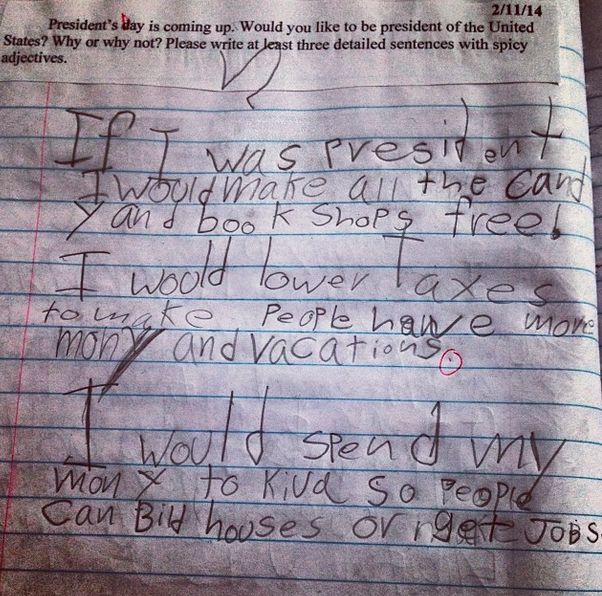 2/11/14
President's day is coming up. Would you like to be president of the United
States? Why or why not? Please write at least three detailed sentences with spicy
adjectives.
If I was president
I would make all the cand
y and book Shops free!
I would lower Taxes
to make People have more
mony and vacations.
I would spend my
mony to Kiva so People
Can Bild houses or get JOBS.